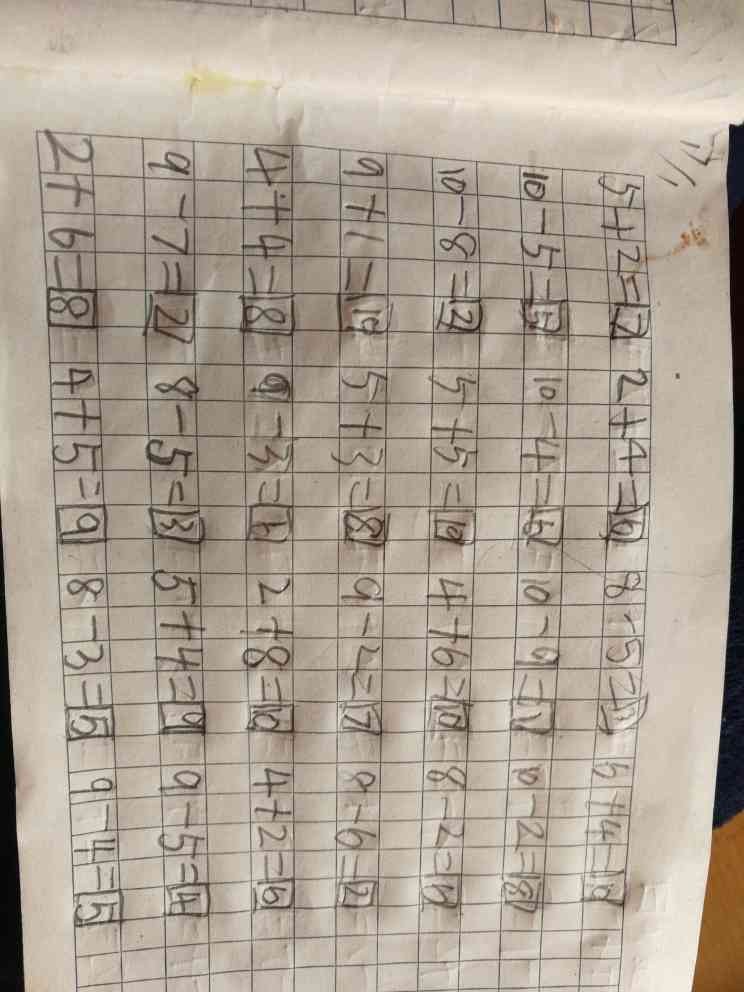 5+2=7 2+4=6 8-5=3 6+4=10
10-5=5 10-4=6 10-9=1 10-2=8
10-8=2 5+5=10 4+6=10 8-2=6
9+1=10 5+3=8 9-2=7 8-6=2
4+4=8 9-3=6 2+8=10 4+2=6
9-7=2 8-5=3 5+4=9 9-5=4
2+6=8 4+5=9 8-3=5 9-4=5